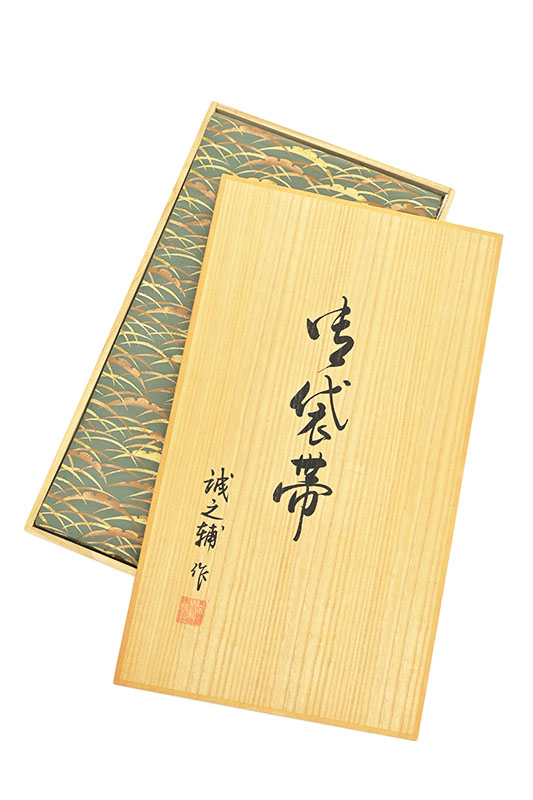 御袋帯
誠之輔 作